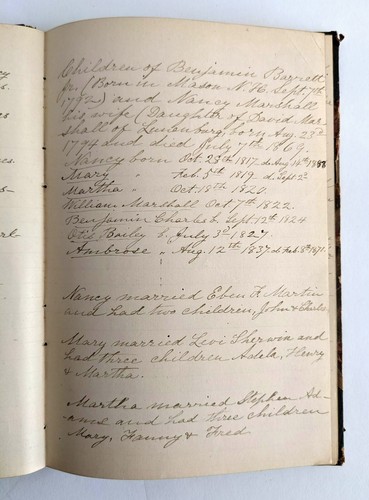 Children of Benjamin Barrett
Jr. (Born in Mason N.H. Sept. 7th
1792) and Nancy Marshall
his wife (Daughter of David Mar-
shall of Lunenburg, born Aug. 23d
1794 and died July 7th 1869.
Nancy born Oct. 23th 1817. d. Aug 14th 1888
Mary " Feb. 5th 1819. d. Sept 2
Martha " Oct. 18th 1820.
William Marshall Oct 7th 1822.
Benjamin Charles b. Sept. 12th 1824
Otis Bailey b. July 3d 1827.
Ambrose " Aug. 12th 1837. d. Feb. 8th 1871.
Nancy married Eben F. Martin
and had two children, John &
Mary married Levi Sherwin and
had three children Adela, Henry
& Martha.
Martha married Stephen Ad-
ams and had three children
Mary, Fanny & Fred